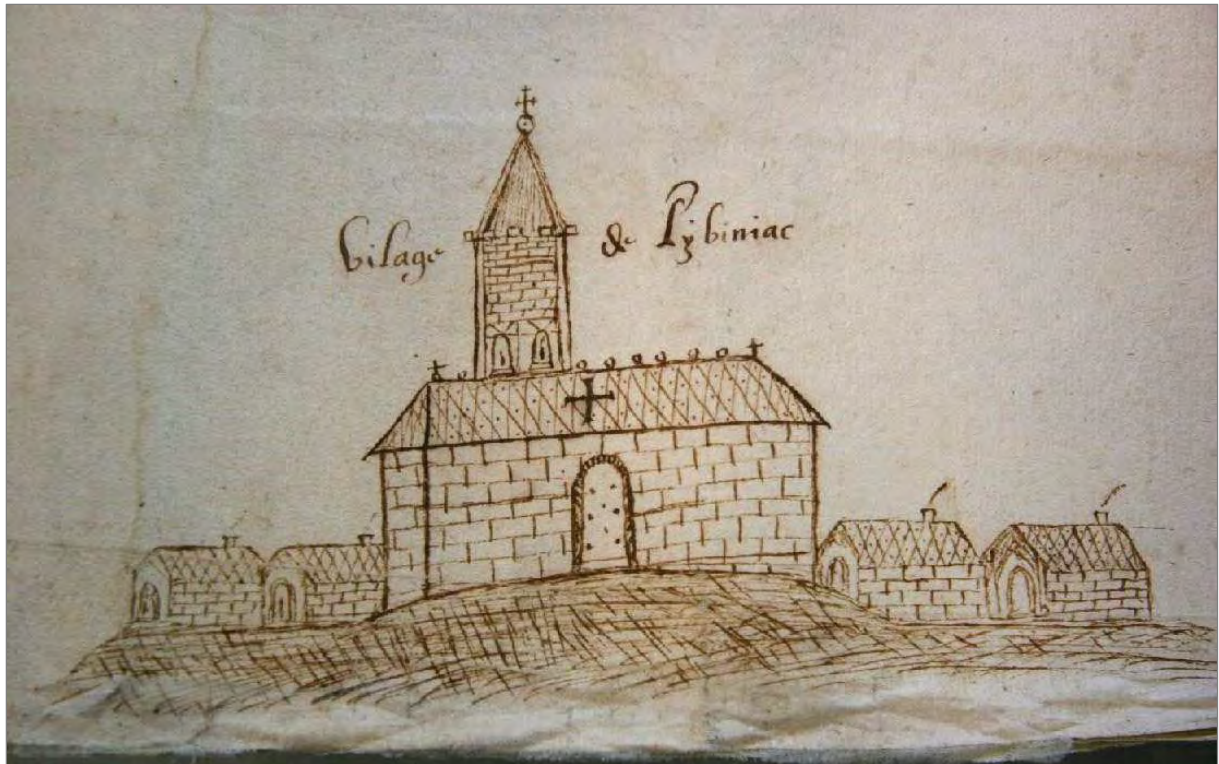 Vilage de Pybiniac